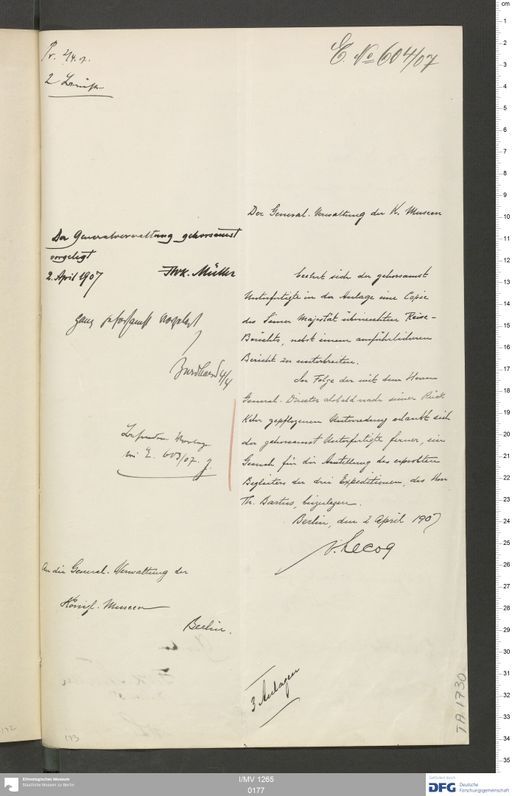 E. No 604/07
Pr. 2/4. 07.
Der General-Verwaltung der K. Museen
Der Generalverwaltung gehorsamst
vorgelegt
2. April 1907 FWK. Müller
beehrt sich der gehorsamst
Unterfertigte in der Anlage eine Copie
des Seiner Majestät überreichten Reise-
Berichts, nebst einem ausführlicheren
Bericht zu unterbreiten.
In Folge der mit dem Herrn
General-Director alsbald nach seiner Rück
Kehr gepflogenen Unterredung erlaubt sich
der gehorsamst Unterfertigte ferner, ein
Gesuch für die Anstellung des erprobten
Begleiters der drei Expeditionen, des Herrn
Th. Bartus, beizulegen.
Berlin, den 2 April 1907
v. Lecoq
ganz gehorsamst vorgelegt
4/4
E. 603/07.
An die General-Verwaltung der
Königl. Museen
Berlin.
3 Anlagen
TA 1730
173
I/MV 1265
0177
Ethnologisches Museum
Staatliche Museen zu Berlin
DFG
Deutsche
Forschungsgemeinschaft